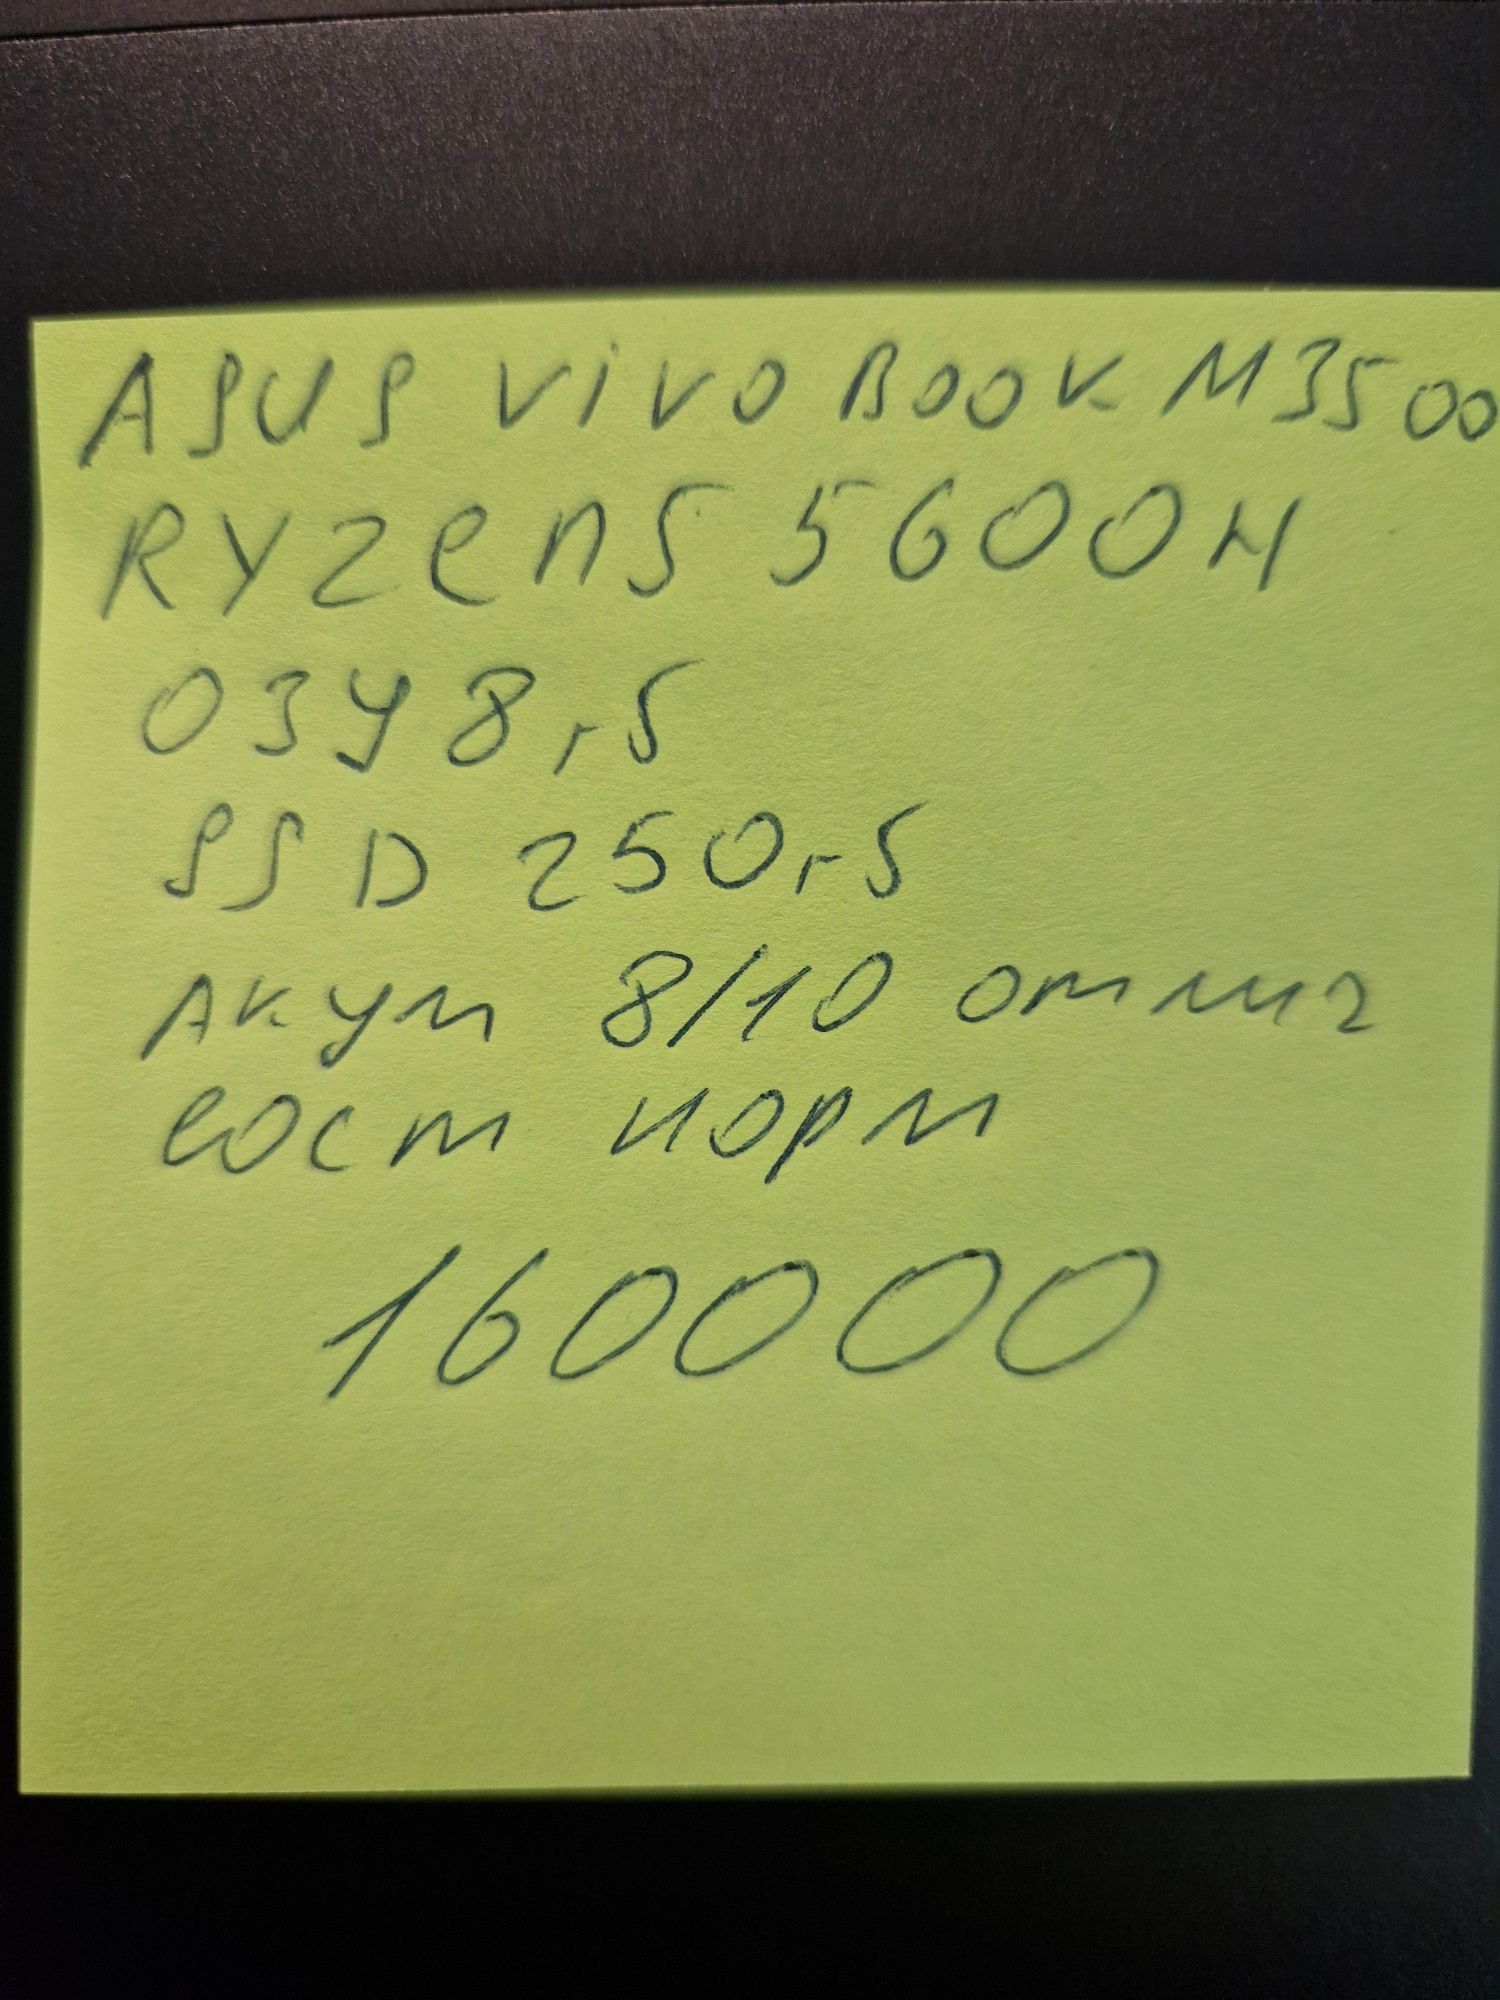 ASUS VIVO BOOK M3500
RYZEN 5 5600H
ОЗУ 8 гб
SSD 250 гб
Акум 8/10 отлич
сост норм
160000